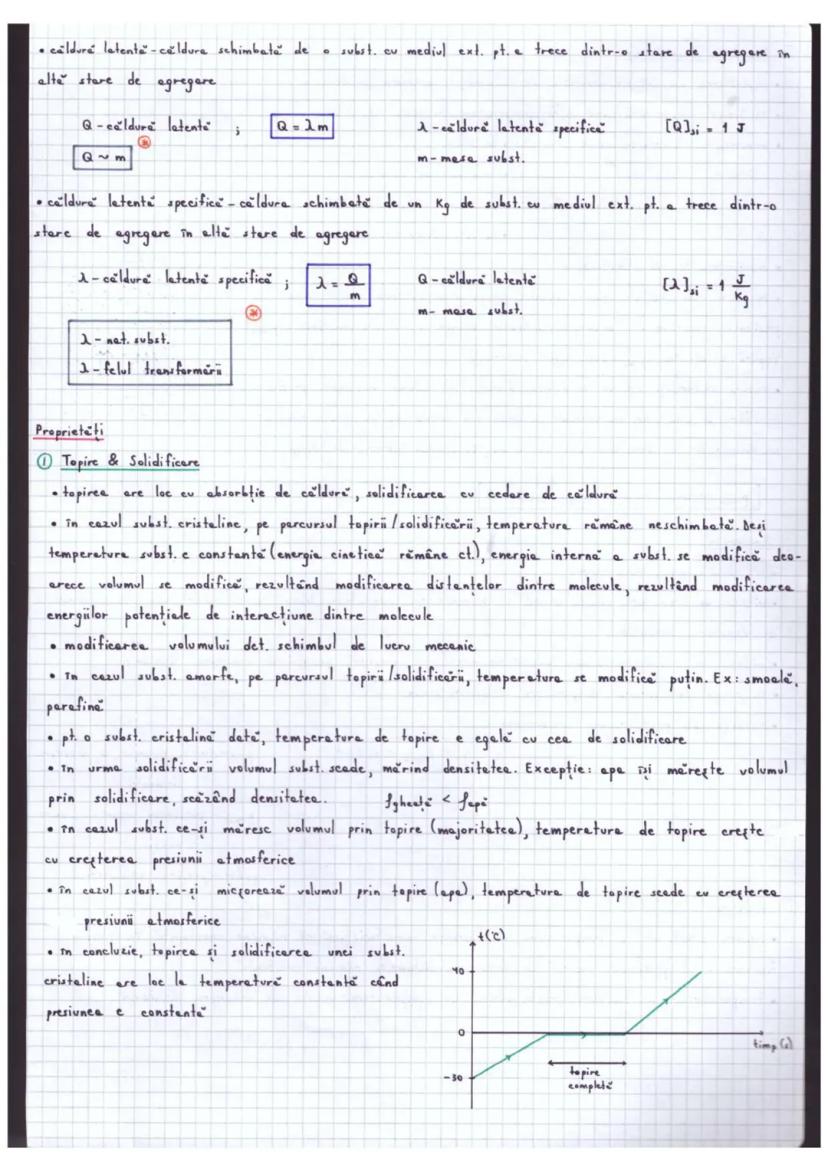 • căldură latentă - căldura schimbată de o subst. cu mediul ext. pt. a trece dintr-o stare de agregare în
altă stare de agregare
Q - căldură latentă ; Q = λm λ - căldură latentă specifică [Q]si = 1 J
Q ~ m m - masa subst.
• căldură latentă specifică - căldura schimbată de un Kg de subst. cu mediul ext. pt. a trece dintr-o
stare de agregare în altă stare de agregare
λ - căldură latentă specifică ; λ = Q/m Q - căldură latentă [λ]si = 1 J/Kg
m - masa subst.
λ - nat. subst.
λ - felul transformării
Proprietăți
① Topire & Solidificare
• topirea are loc cu absorbție de căldură, solidificarea cu cedare de căldură
• în cazul subst. cristaline, pe parcursul topirii/solidificării, temperatura rămâne neschimbată. Deși
temperatura subst. e constantă (energia cinetică rămâne ct.), energia internă a subst. se modifică deo-
arece volumul se modifică, rezultând modificarea distanțelor dintre molecule, rezultând modificarea
energiilor potențiale de interacțiune dintre molecule
• modificarea volumului det. schimbul de lucru mecanic
• în cazul subst. amorfe, pe parcursul topirii/solidificării, temperatura se modifică puțin. Ex: smoală,
parafină
• pt. o subst. cristalină dată, temperatura de topire e egală cu cea de solidificare
• în urma solidificării volumul subst. scade, mărind densitatea. Excepție: apa își mărește volumul
prin solidificare, scăzând densitatea. ρgheață < ρapă
• în cazul subst. ce-și măresc volumul prin topire (majoritatea), temperatura de topire crește
cu creșterea presiunii atmosferice
• în cazul subst. ce-și micșorează volumul prin topire (apa), temperatura de topire scade cu creșterea
presiunii atmosferice
• în concluzie, topirea și solidificarea unei subst.
cristaline are loc la temperatură constantă când
presiunea e constantă
t(°C)
40
0
timp (s)
-30
topire
completă